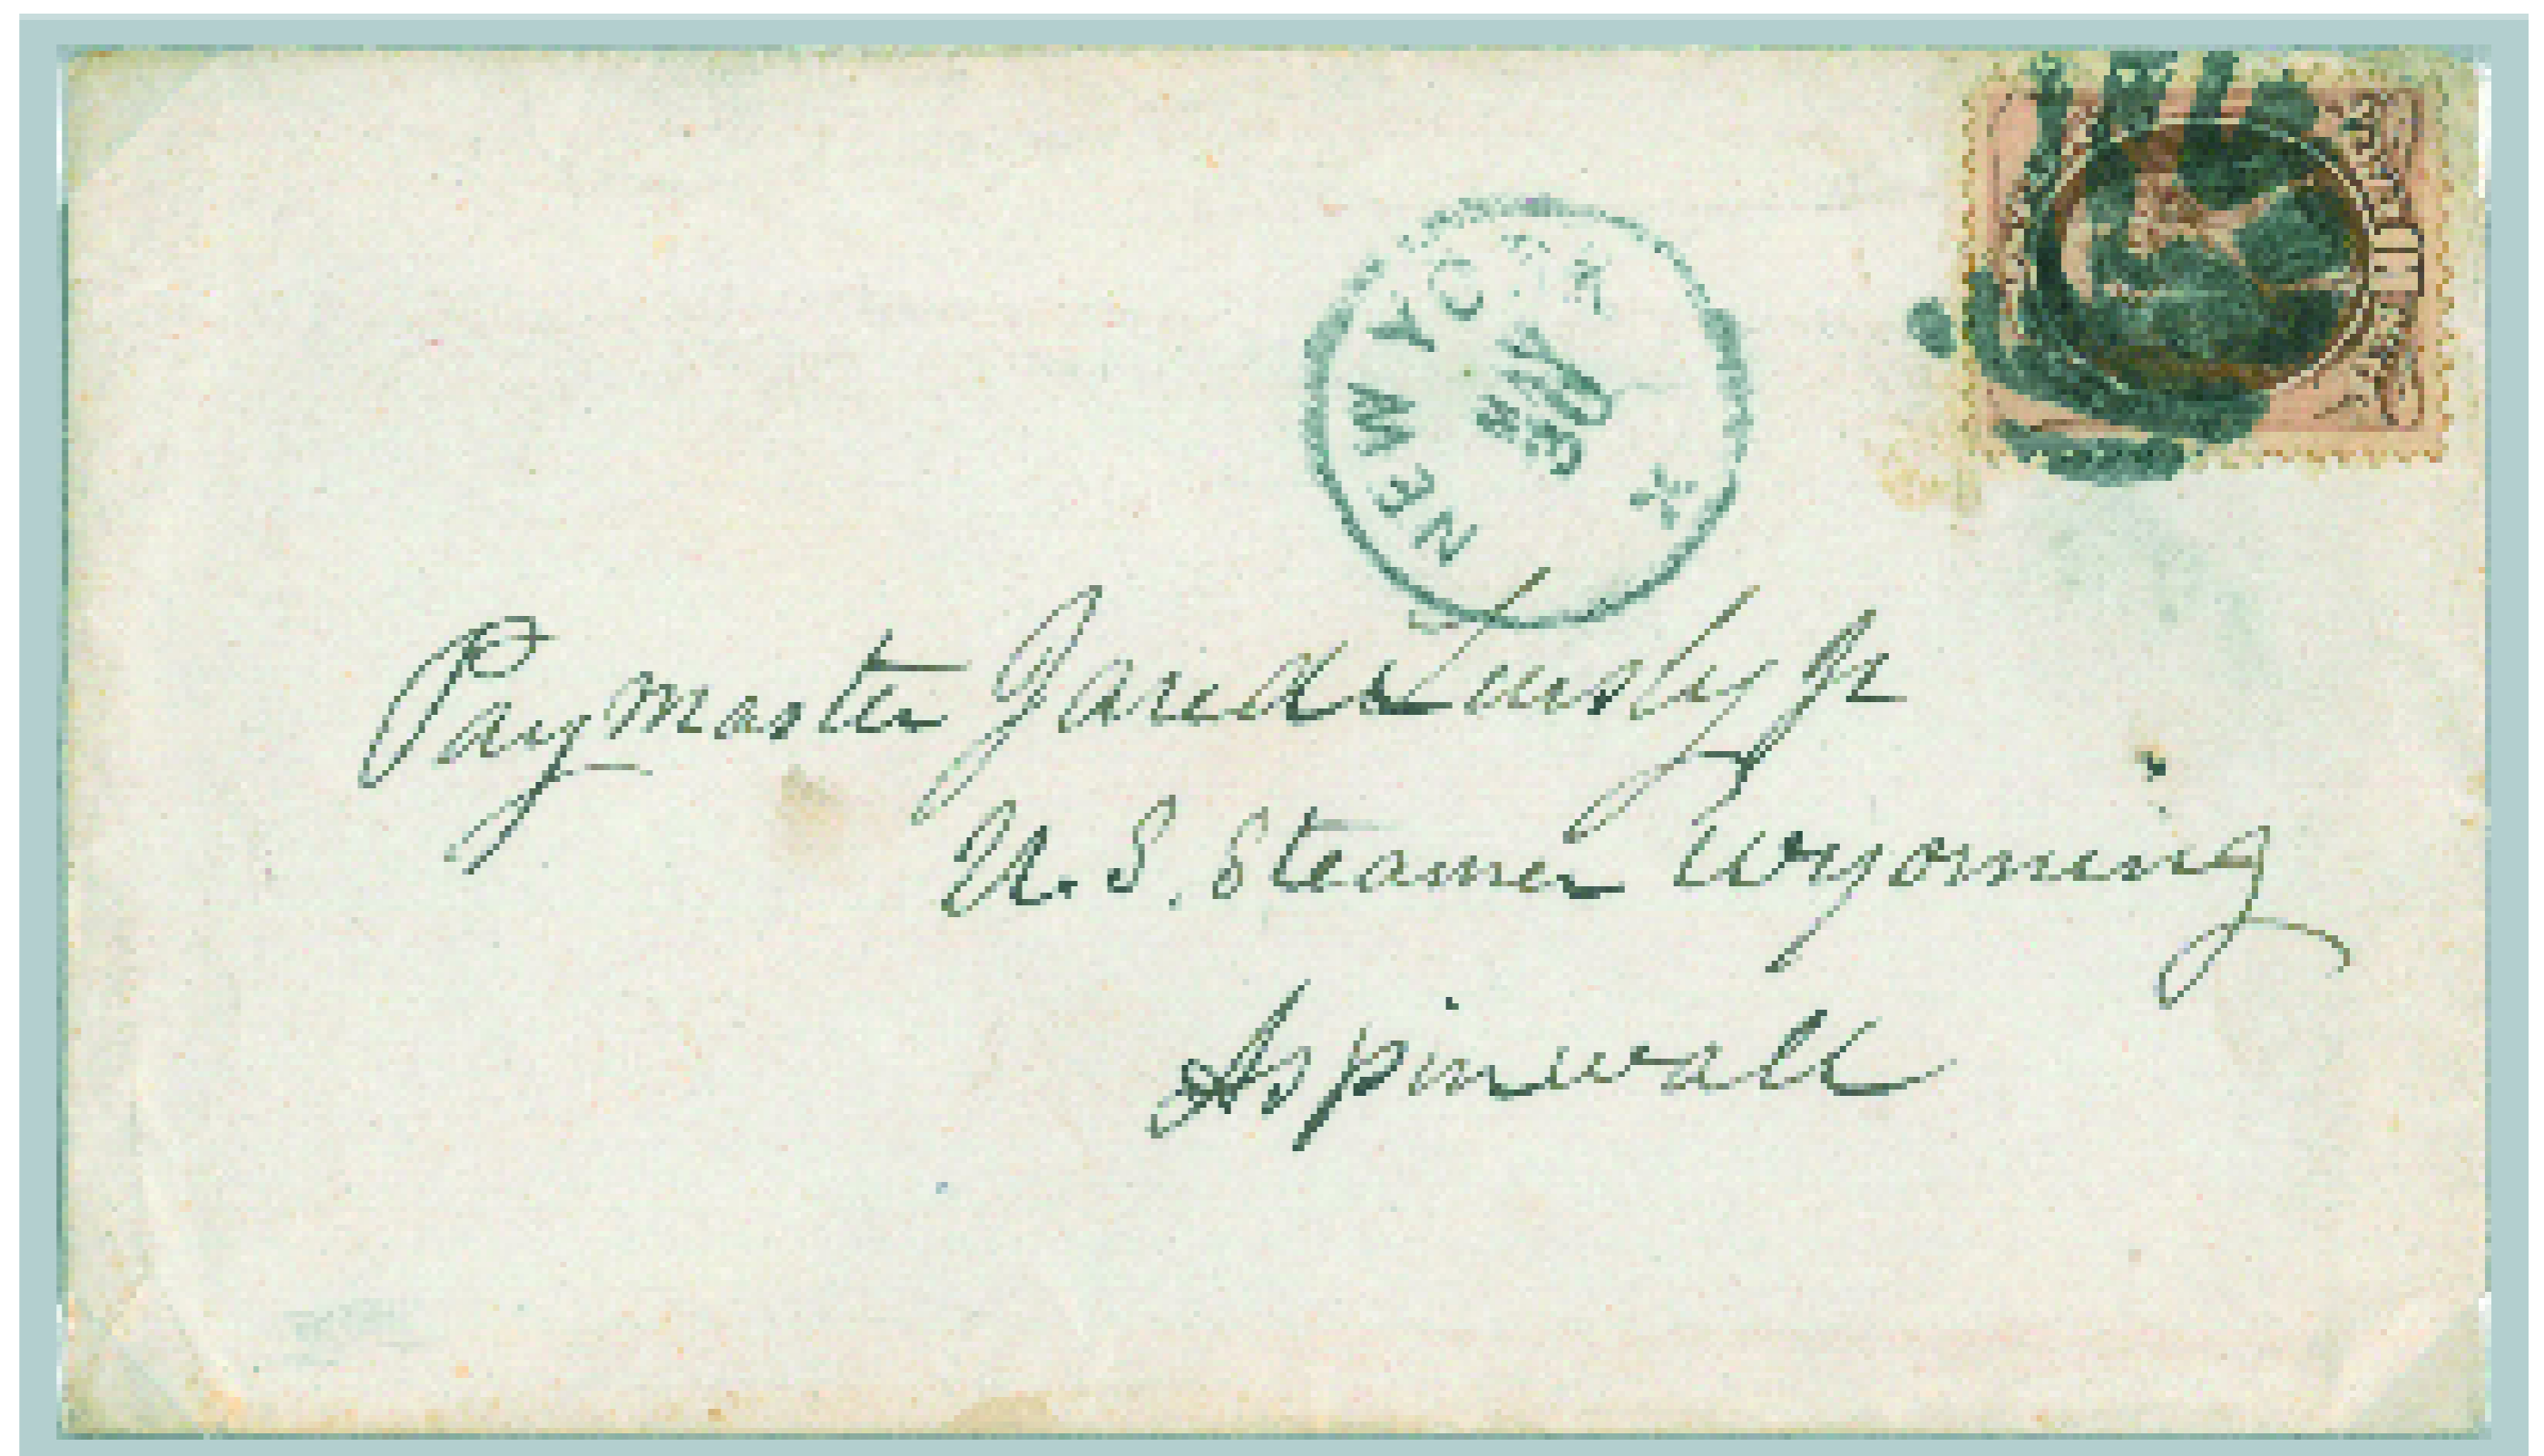 NEW YORK
MAY
30
Paymaster Jared Linsly Jr
U. S. Steamer Wyoming
Aspinwall